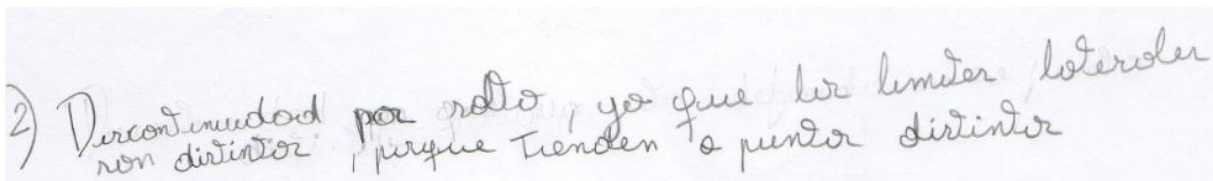 2) Discontinuidad por salto, ya que los limites laterales
son distintos, porque Tienden a puntos distintos